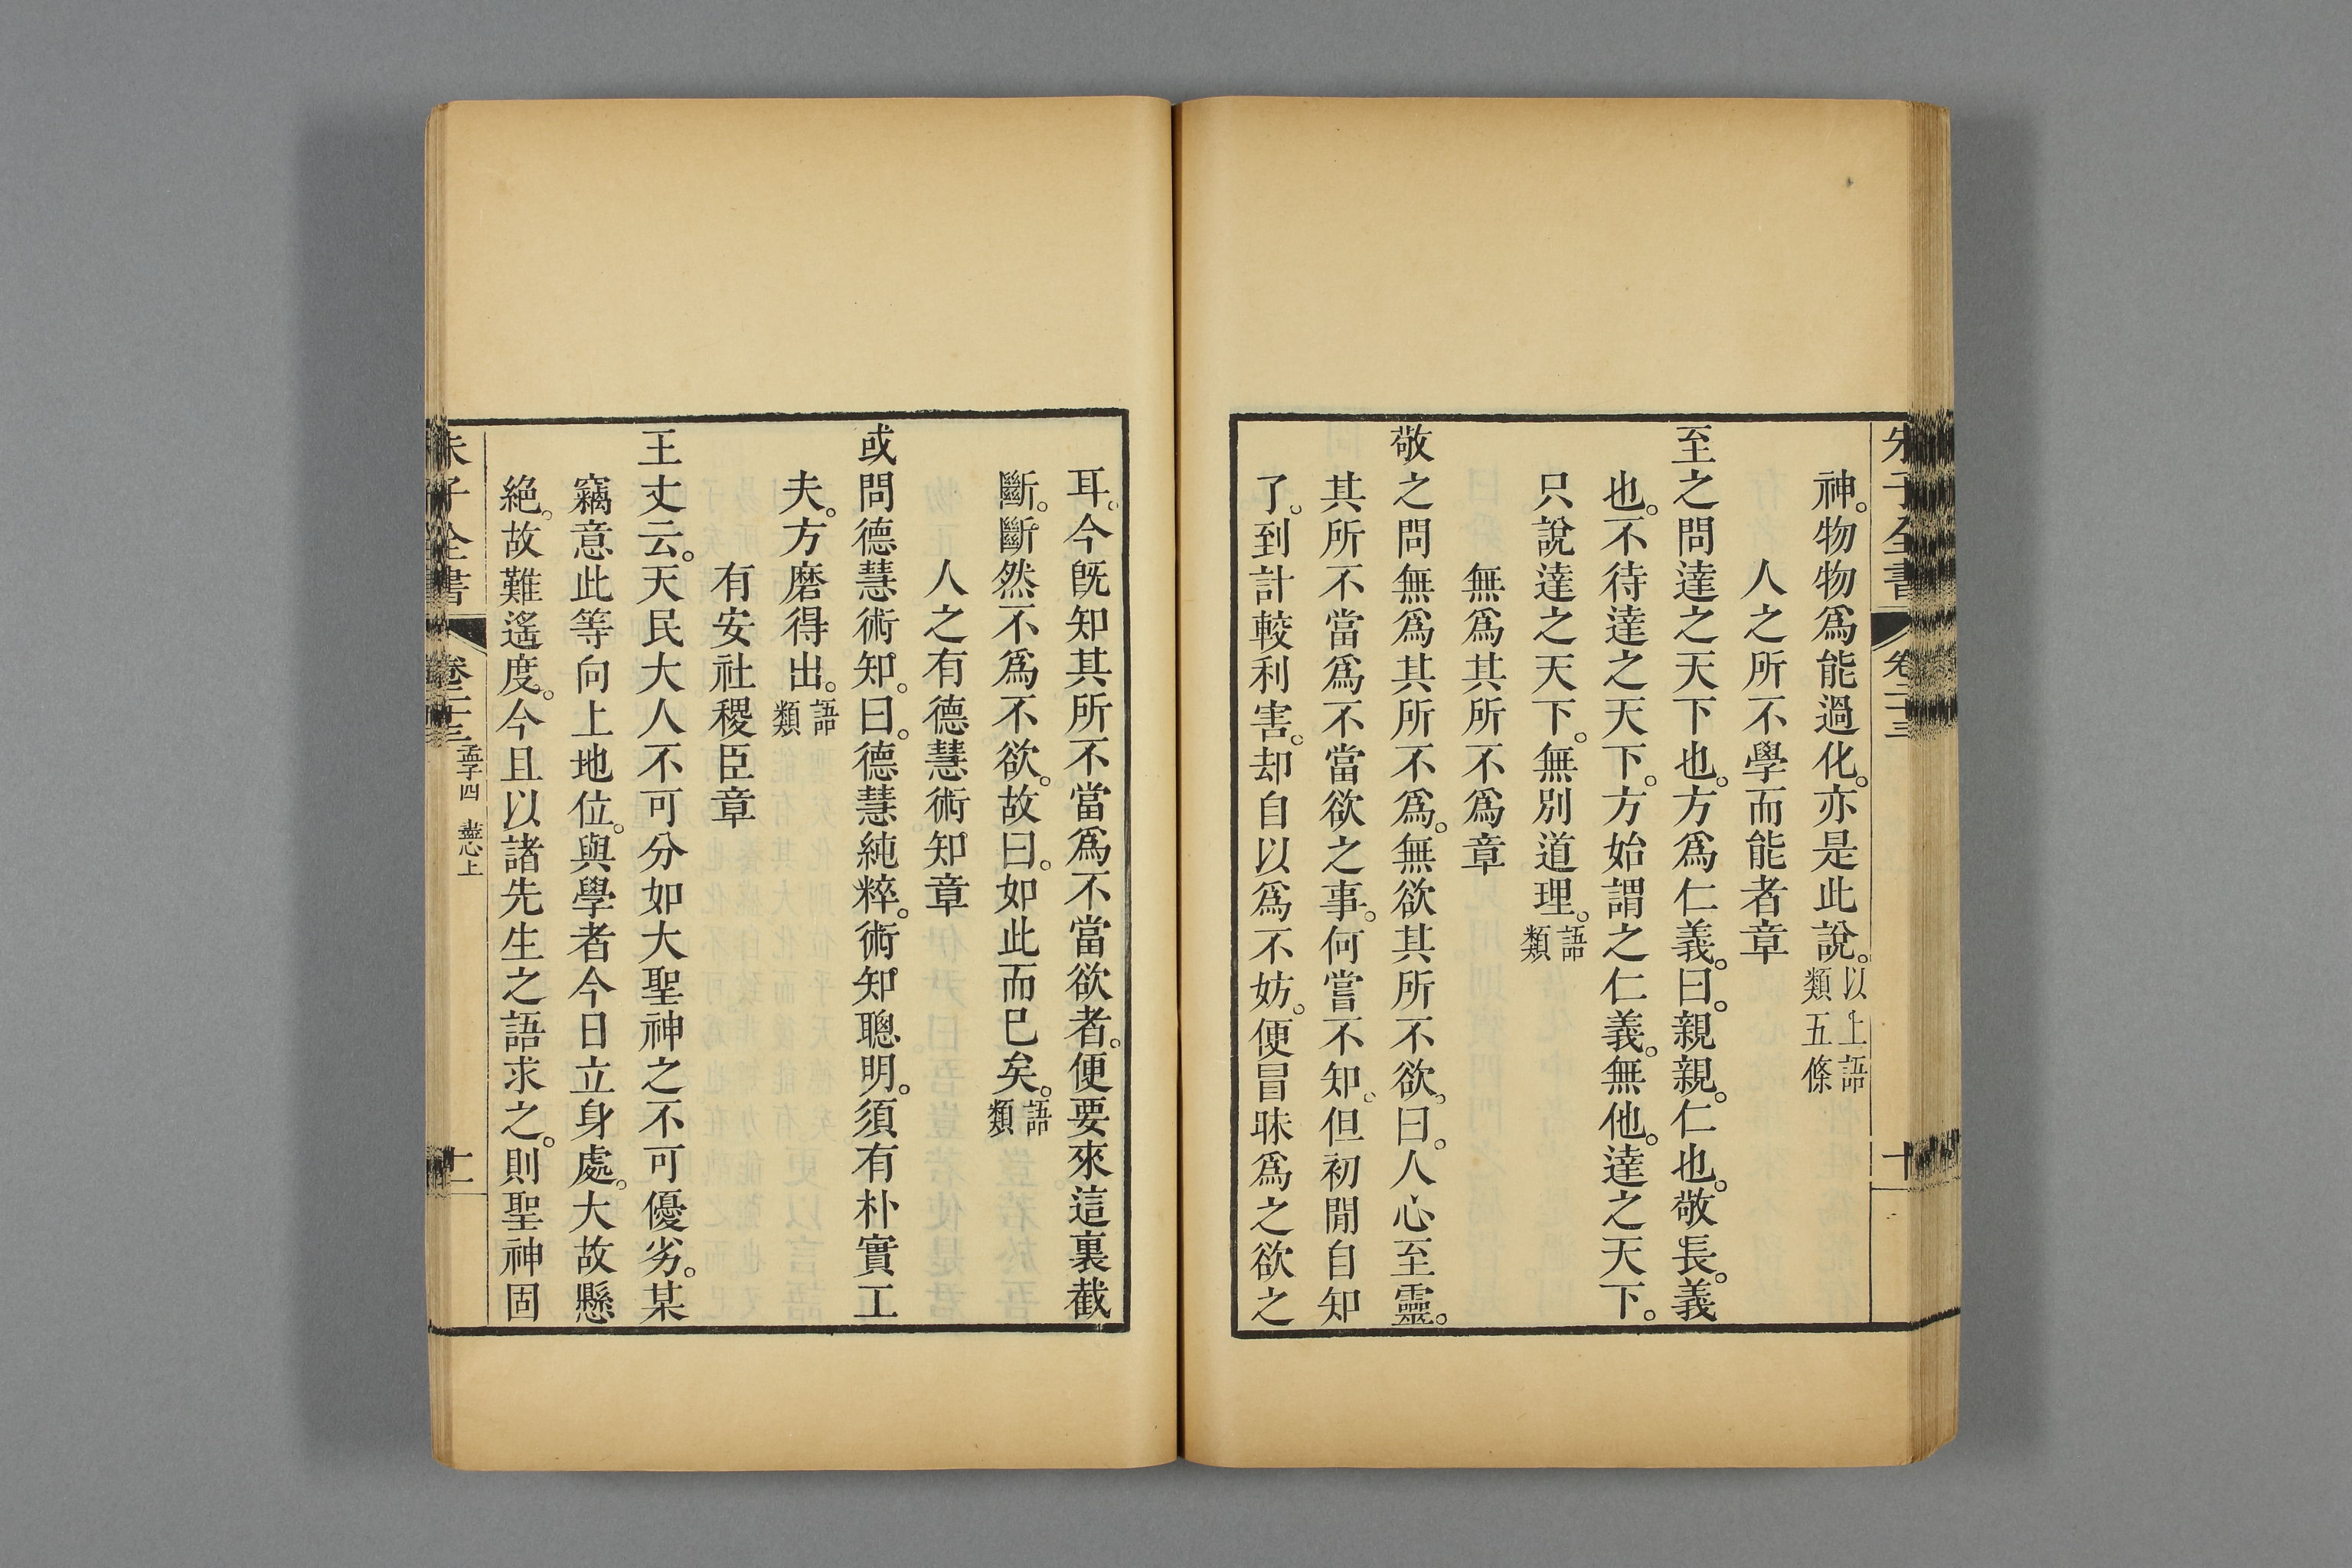 朱子全書 卷二十三 十
神。物物爲能過化。亦是此說。以上語類五條
人之所不學而能者章
至之問達之天下也。方爲仁義。曰。親親。仁也。敬長。義
也。不待達之天下。方始謂之仁義。無他。達之天下。
只說達之天下。無別道理。語類
無爲其所不爲章
敬之問無爲其所不爲。無欲其所不欲。曰。人心至靈。
其所不當爲不當欲之事。何嘗不知。但初閒自知
了。到計較利害。却自以爲不妨。便冒昧爲之欲之
耳。今旣知其所不當爲不當欲者。便要來這裏截
斷。斷然不爲不欲。故曰。如此而已矣。語類
人之有德慧術知章
或問德慧術知。曰。德慧純粹。術知聰明。須有朴實工
夫。方磨得出。語類
有安社稷臣章
王丈云。天民大人不可分如大聖神之不可優劣。某
竊意此等向上地位。與學者今日立身處。大故懸
絕。故難遙度。今且以諸先生之語求之。則聖神固
朱子全書 卷二十三 孟子四 盡心上